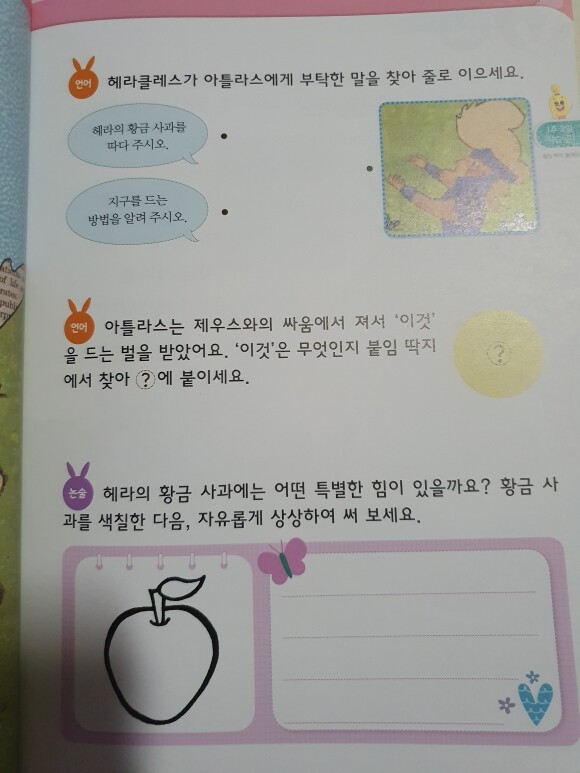 언어 헤라클레스가 아틀라스에게 부탁한 말을 찾아 줄로 이으세요.
헤라의 황금 사과를
따다 주시오.
지구를 드는
방법을 알려 주시오.
언어 아틀라스는 제우스와의 싸움에서 져서 ‘이것’
을 드는 벌을 받았어요. ‘이것’은 무엇인지 붙임 딱지
에서 찾아 ?에 붙이세요.
?
논술 헤라의 황금 사과에는 어떤 특별한 힘이 있을까요? 황금 사
과를 색칠한 다음, 자유롭게 상상하여 써 보세요.